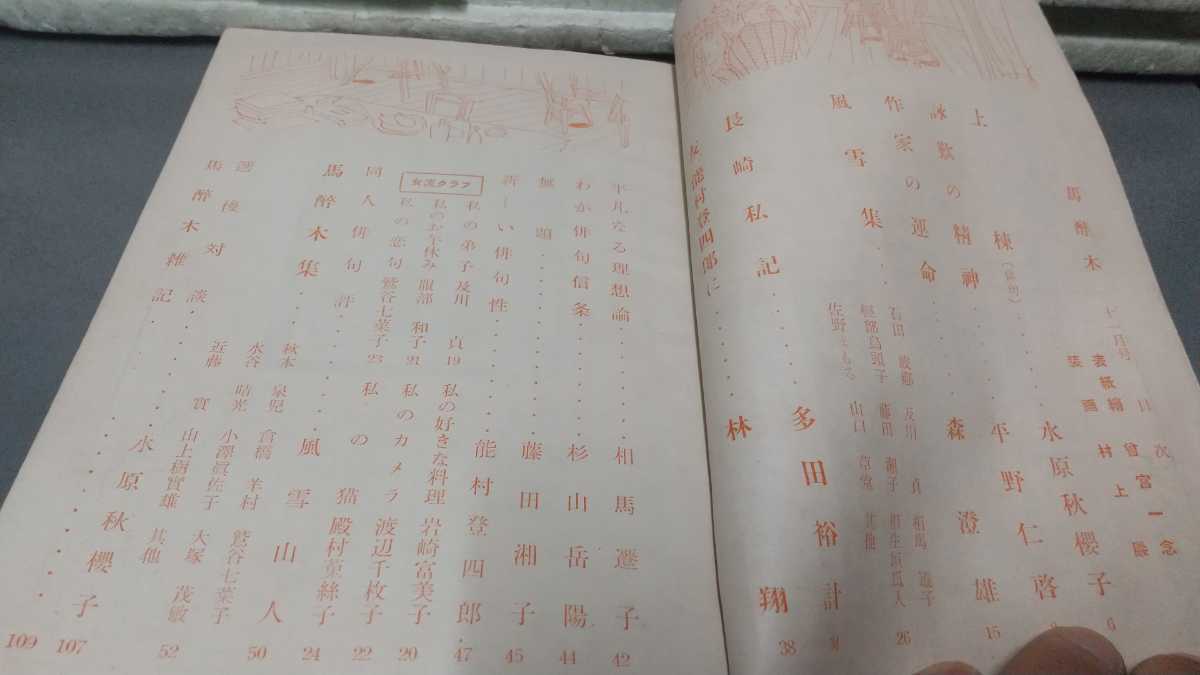 馬醉木 十一月号 目次
表紙繪 曾宮一念
装画 村上巖
上棟(俳句)・・・水原秋櫻子 6
詠歎の精神・・・平野仁啓
作家の運命・・・森澄雄 15
風雪集・・・
石田波郷 及川貞 相馬遷子
軽部烏頭子 藤田湘子 相生垣瓜人
佐野まもる 山口草堂 其他 26
長崎私記・・・多田裕計
友、能村登四郎に・・・林翔 38
平凡なる理想論・・・相馬遷子 42
わが俳句信条・・・杉山岳陽 44
無題・・・藤田湘子 45
新しい俳句性・・・能村登四郎 47
女流クラブ
私の弟子 及川貞 19
私の好きな料理 岩崎富美子 20
私のお午休み 服部和子 21
私のカメラ 渡辺千枚子 22
私の恋句 鷲谷七菜子 23
私の猫 殿村莵絲子 24
同人俳句評・・・風雪山人 50
馬醉木集・・・
秋本 泉児 倉橋羊村 鷲谷七菜子
水谷晴光 小澤眞佐子 大塚茂敏
近藤實 山上樹實雄 其他 52
選後對談・・・水原秋櫻子 107
馬醉木雜記・・・109